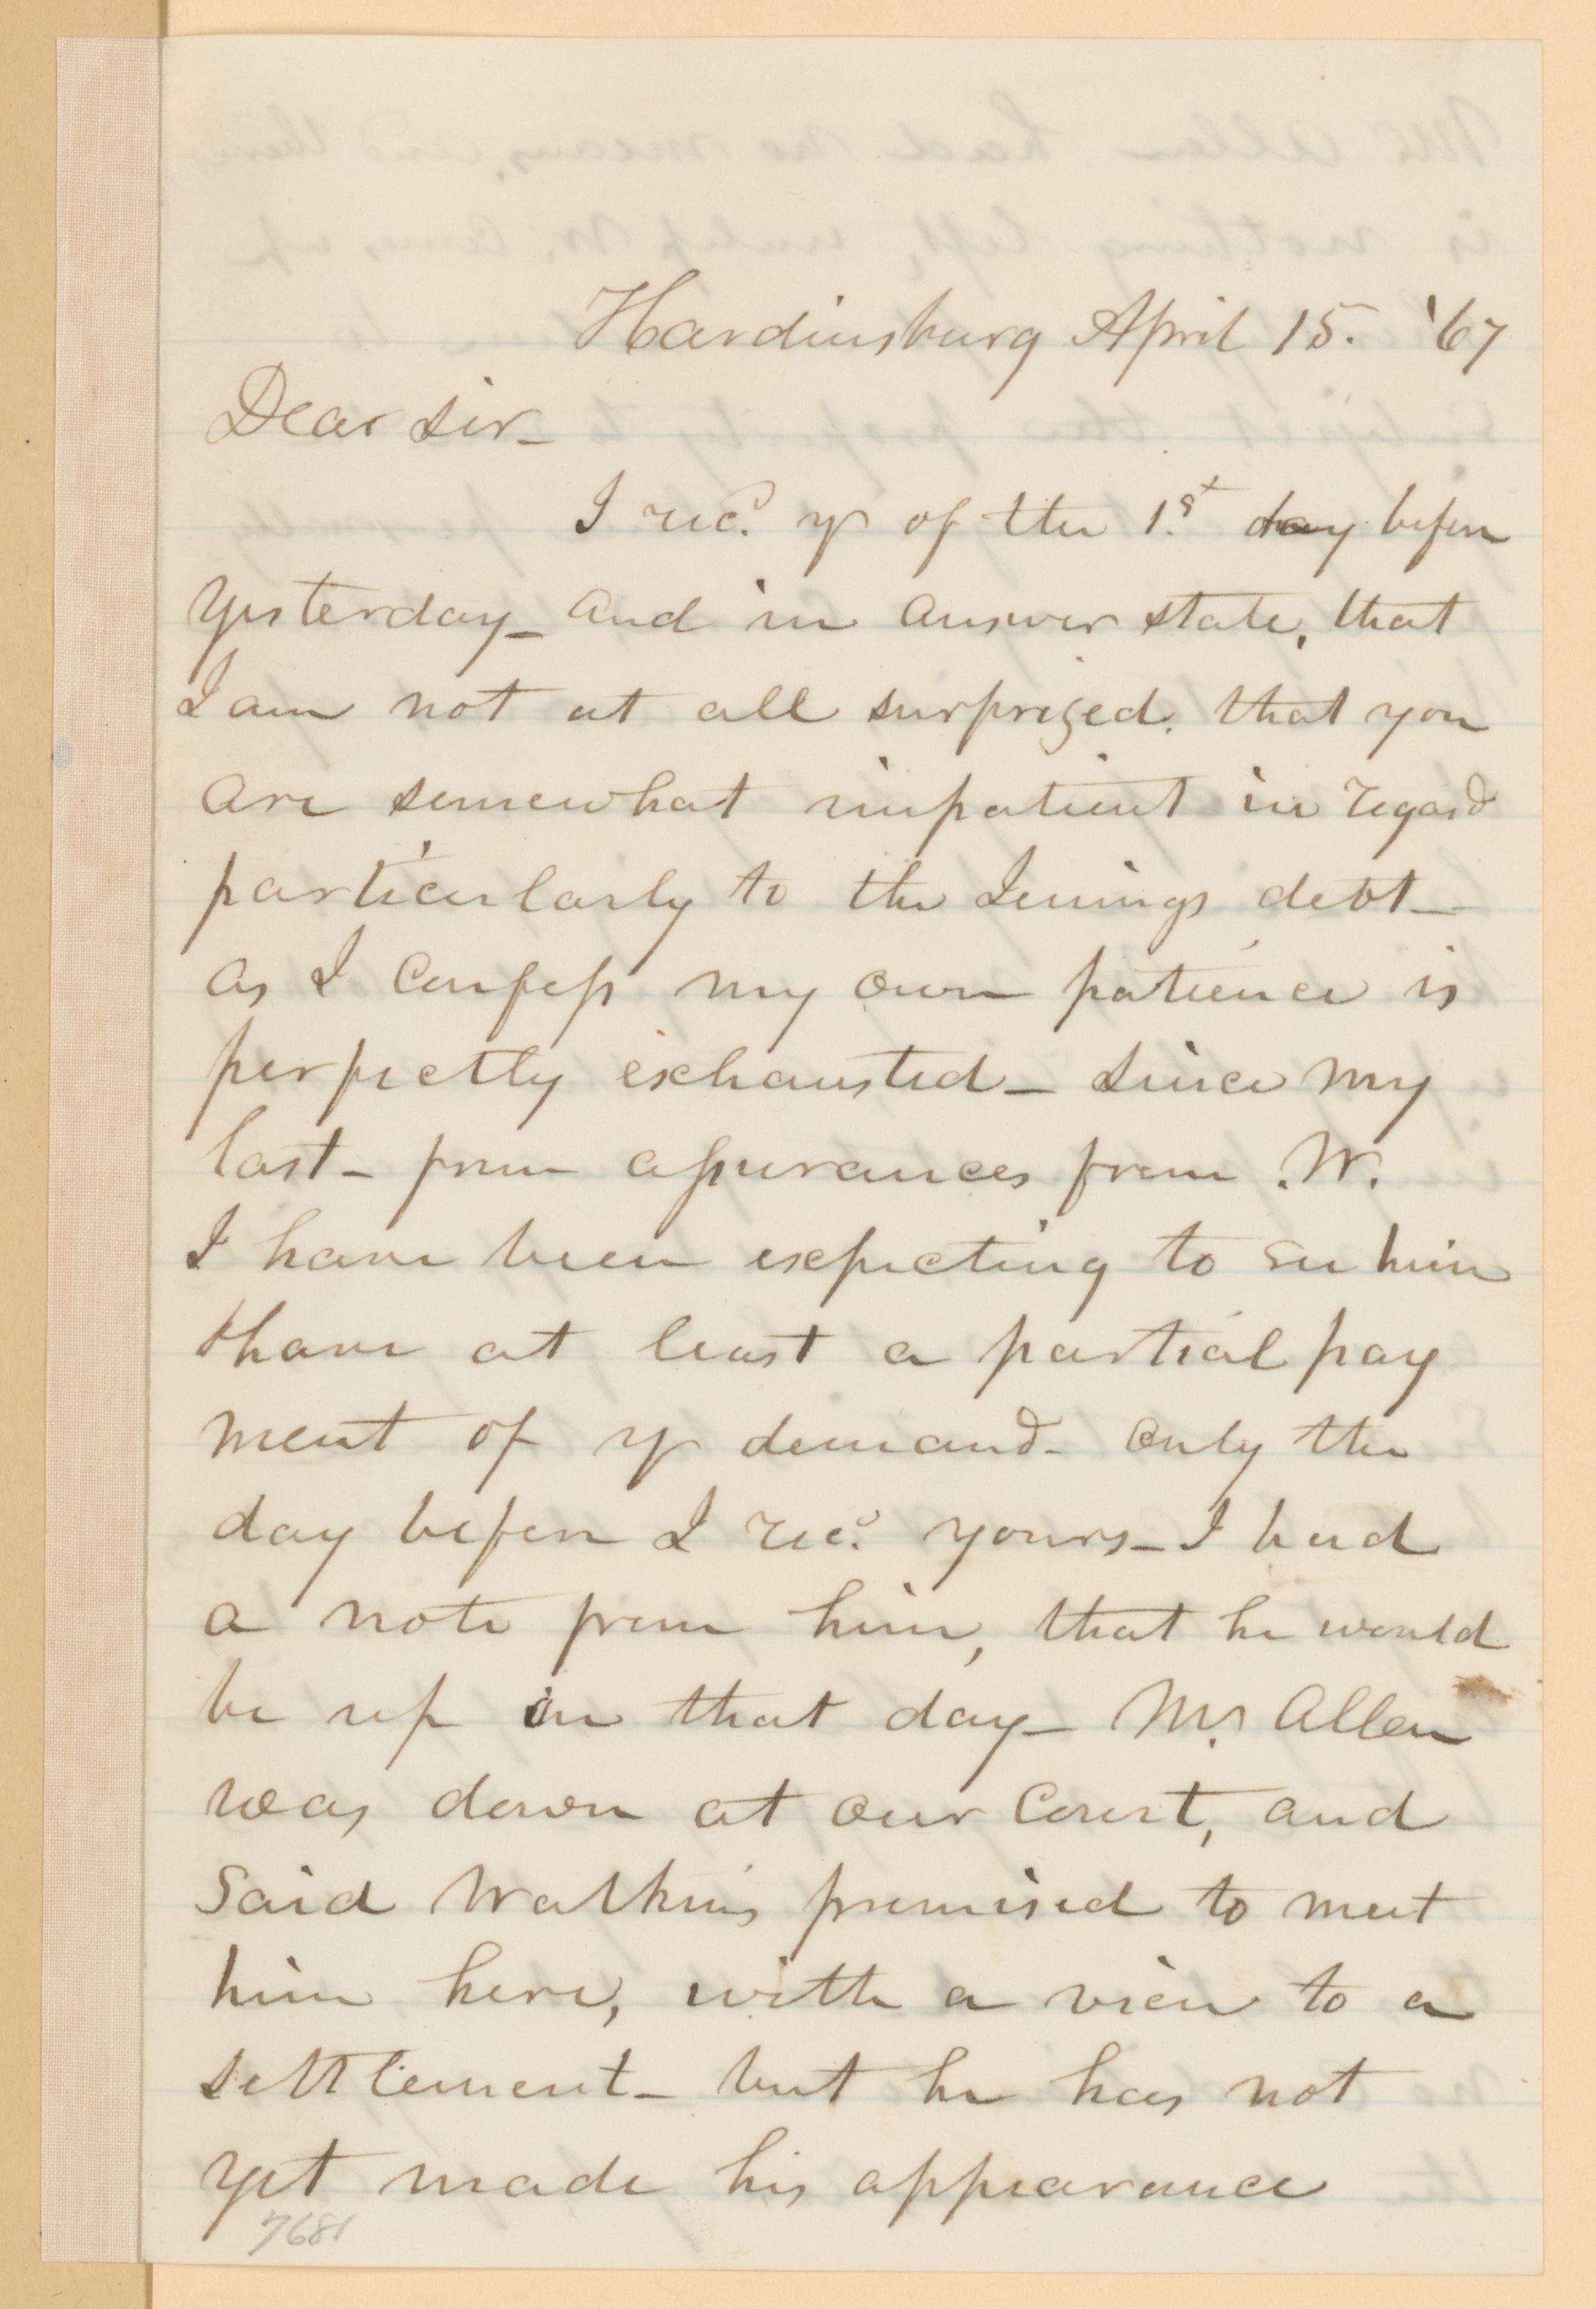 Hardinsburg April 15. '67
Dear Sir_
I recd. yr of the 1st. day before
yesterday_ and in answer state, that
I am not at all surprized. that you
are somewhat impatient in regard
particularly to the Jenings debt_
as I confess my own patience is
perfectly exhausted_ Since my
last_ from assurances from W.
I have been expecting to see him
& have at least a partial pay
ment of yr demand_ Only the
day before I recd. yours_ I had
a note from him, that he would
be up on that day_ Mr. Allen
was down at our Court, and
said Wathins promised to meet
him here, with a view to a
settlement_ but he has not
yet made his appearance
7681